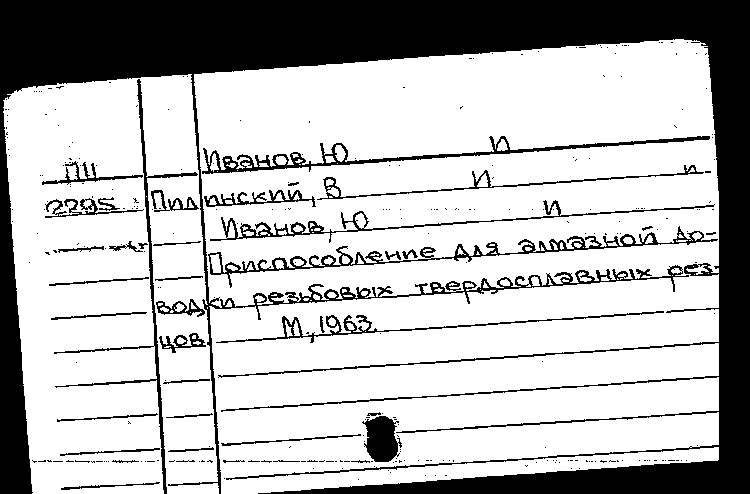 ПШ Иванов, Ю И
2295 Пилинский, В И и
Иванов, Ю И
Приспособление для алмазной до-
водки резьбовых твердосплавных рез-
цов. М., 1963.